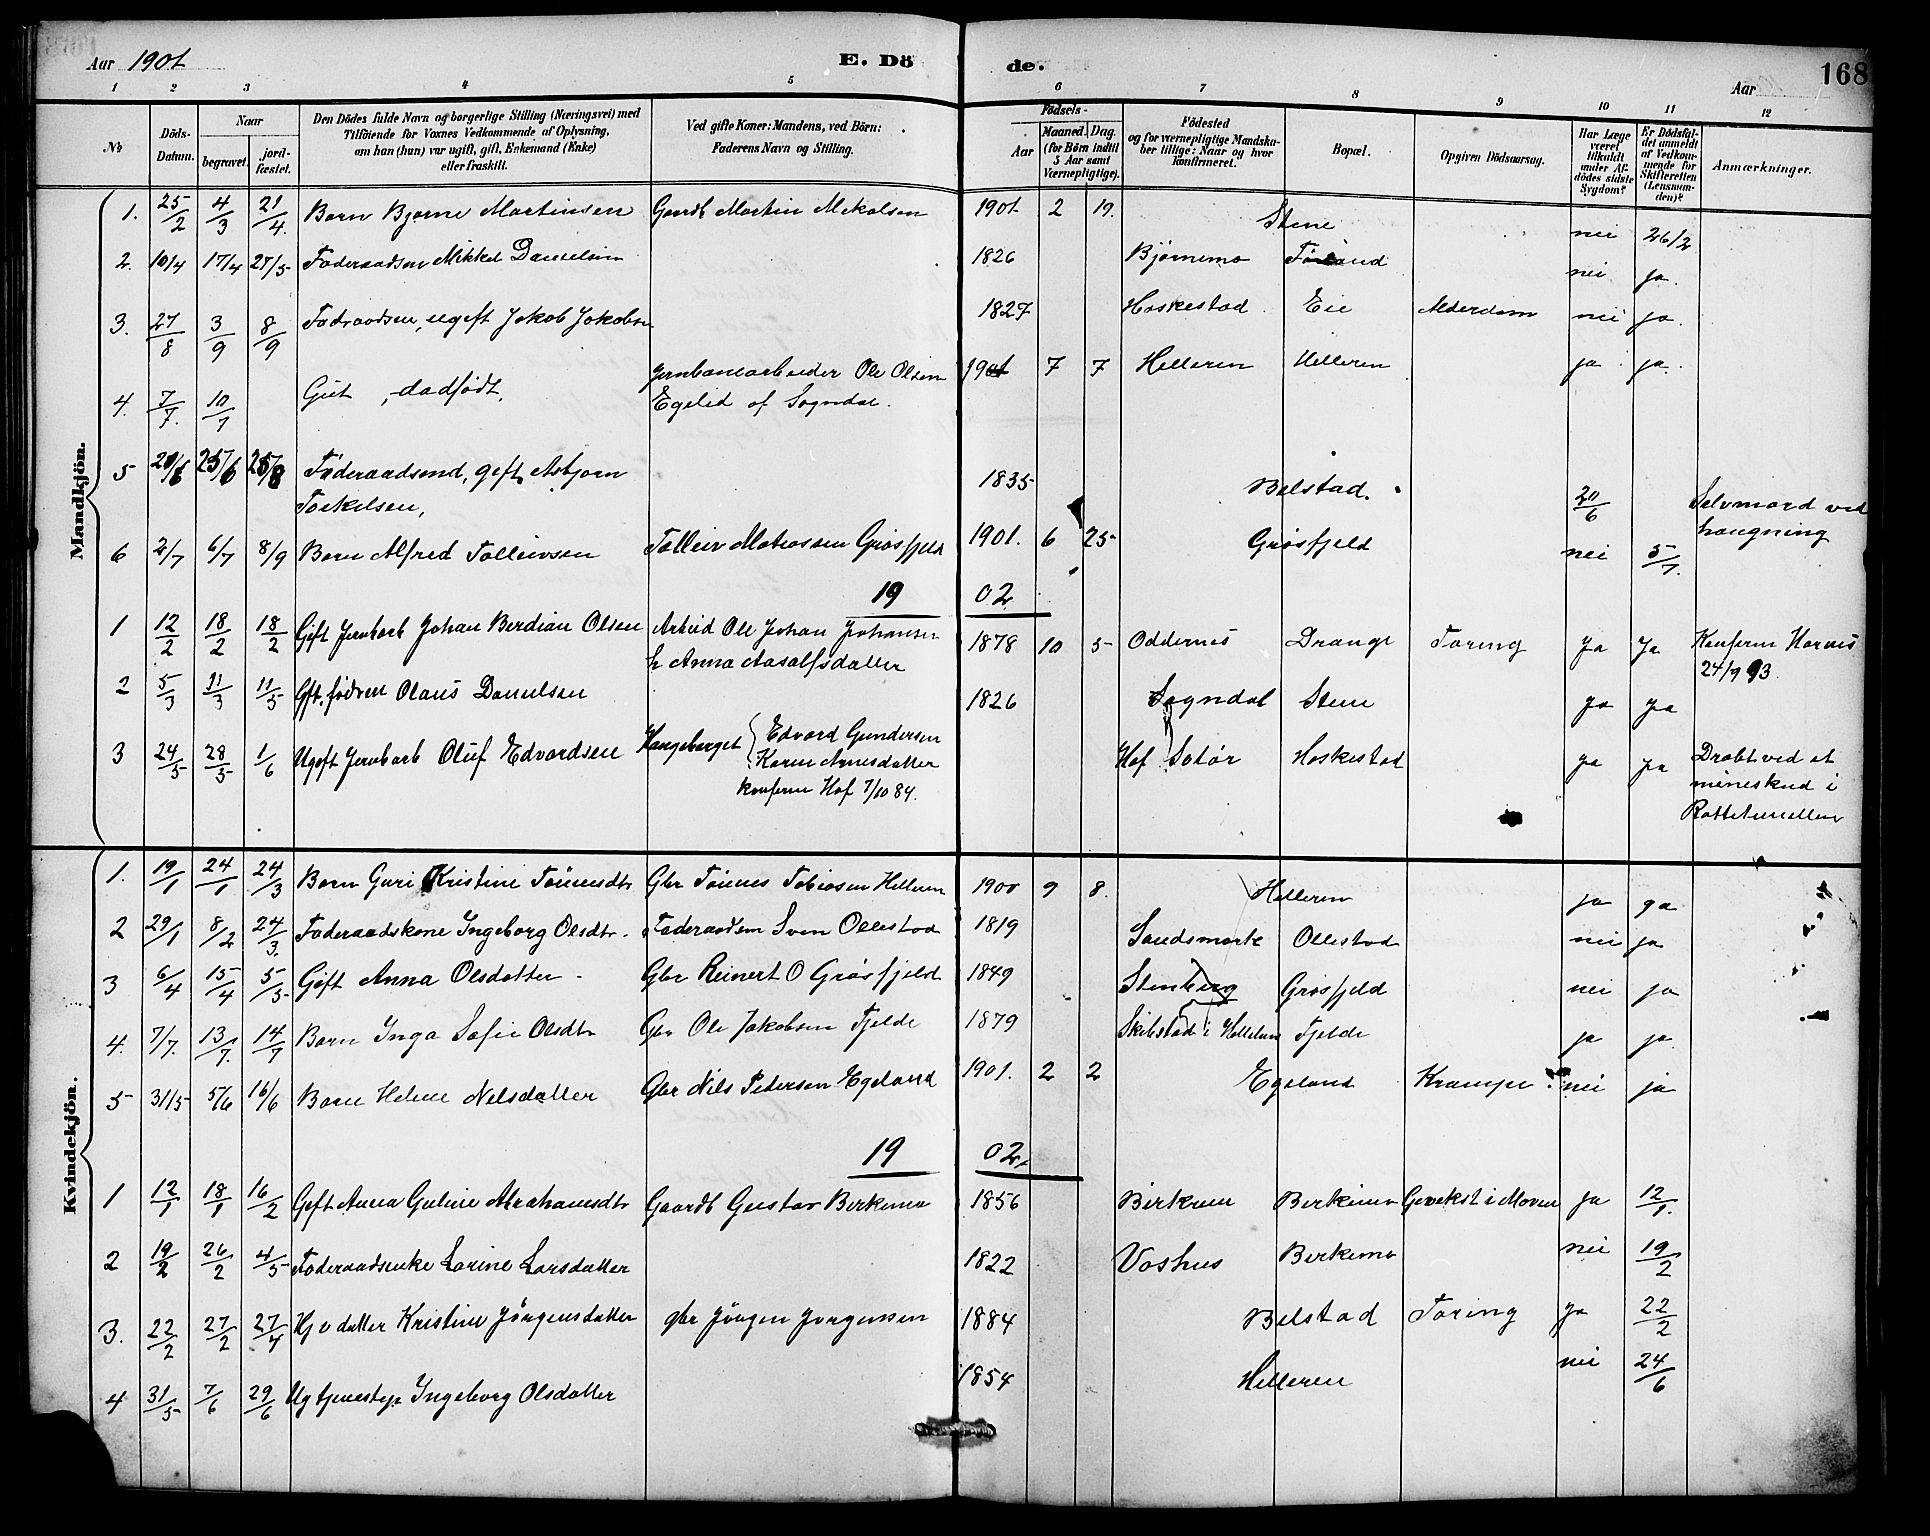 Aar 1901 E. Dö de. Aar 168
1 2 3 4 5 6 7 8 9 10 11 12
No Döds-Datum. Naar begravet. jordfæstet. Den Dödes fulde Navn og borgerlige Stilling (Næringsvei) med Tilföiende for Voxnes Vedkommende af Oplysning, om han (hun) var ugift, gift, Enkemand (Enke) eller fraskilt. Ved gifte Koner: Mandens, ved Börn: Faderens Navn og Stilling. Födsels- Aar Maaned. Dag. (for Börn indtil 5 Aar samt Værnepligtige). Födested og for værnepligtige Mandskaber tillige: Naar og hvor Konfirmeret. Bopæl. Opgiven Dödsaarsag. Har Læge været tilkaldt under Afdödes sidste Sygdom? Er Dödsfaldet anmeldt af Vedkommende for Skifteretten (Lensmanden)? Anmærkninger.
Mandkjön.
1. 25/2 4/3 21/4. Barn Bjarne Martinsen Gaardb Martin Mikalsen 1901 2 19. Stene nei 26/2
2. 10/4 17/4 27/5 Föderaadsm Mikkel Danielsen 1826 Bjørnemo nei ja.
3. 27/8 3/9 8/9 Födraadsm, ugift Jakob Jakobsen 1827 Haskestad. Eie Alderdom nei ja.
4. 7/7. 10/7 Gut, dødfødt, Jernbanearbeider Ole Olsen 7 7 Helleren Helleren ja ja.
Egelid af Sogndal.
5 25/6 Föderaadsmd, gift Asbjørn 1835 Belstad. 20/6 Selvmord ved
Torkelsen, hængning
6 2/7 6/7 8/9 Barn Alfred Tolleivsen Tolleiv Mathiassen Grøsfjeld 1901. 6 25 Grøsfjeld nei 5/7.
19 02
1 12/2 18/2 18/2 Gift Jernbarb Johan Berdian Olsen Arbeid Ole Johan Johansen 1878 10 5 Oddernes Drange Tæring Ja Ja Konfirm Hornes
& Anna Aasalfsdatter 24/9 93.
2 5/3 11/3 11/5 Gft. födrm Olaus Danielsen 1826 Sogndal Stene ja ja
3 24/5 28/5 1/6 Ugift Jernbarb Oluf Edvardsen Haugeberget { Edvard Gundersen Hof Solør Haskestad ja ja Dræbt ved et
Karen Arnesdatter mineskud i
konfirm Hof 7/10 84. Rottetunellen
Kvindekjön.
1. 19/1 24/1 24/3 Barn Guri Kristine Tönnesdtr Gbr Tönnes Tobiasen Helleren 1900 9 8. Helleren ja ja
2 29/1 8/2 24/3. Föderaadskone Ingeborg Olsdtr. Föderaadsm Sven Ollestad 1819 Sandsmark Ollestad nei ja
3 6/4 15/4 5/5 Gift Anna Olsdatter Gbr Reinert O Grøsfjeld 1849 Stenberg Grøsfjeld nei ja
4. 7/7. 13/7. 14/7 Barn Inga Sofie Olsdtr Gbr Ole Jakobsen Fjelde 1879 Skibstad i Fjelde ja ja
5 31/5 5/6 16/6 Barn Helene Nilsdatter Gbr Nils Petersen Egeland 1901. 2 2 Egeland Krampe nei ja
19 02.
1 12/1 18/1 16/2 Gift Anna Guline Abrahamsdtr Gaardb Gustav Birkemo 1856 Birkrem Berkemo Gevekst i Maven ja 12/1.
2 19/2 26/2 4/5 Föderaadsenke Lorine Larsdatter 1822 Voshus Berkemo nei 19/2
3. 22/2 27/2 27/4 Hj v datter Kristine Jörgensdatter gbr Jörgen Jörgensen 1884 Belstad Tæring ja 22/2
4 31/5 7/6 29/6 Ug tjenestep Ingeborg Olsdatter 1854 Helleren nei 24/6